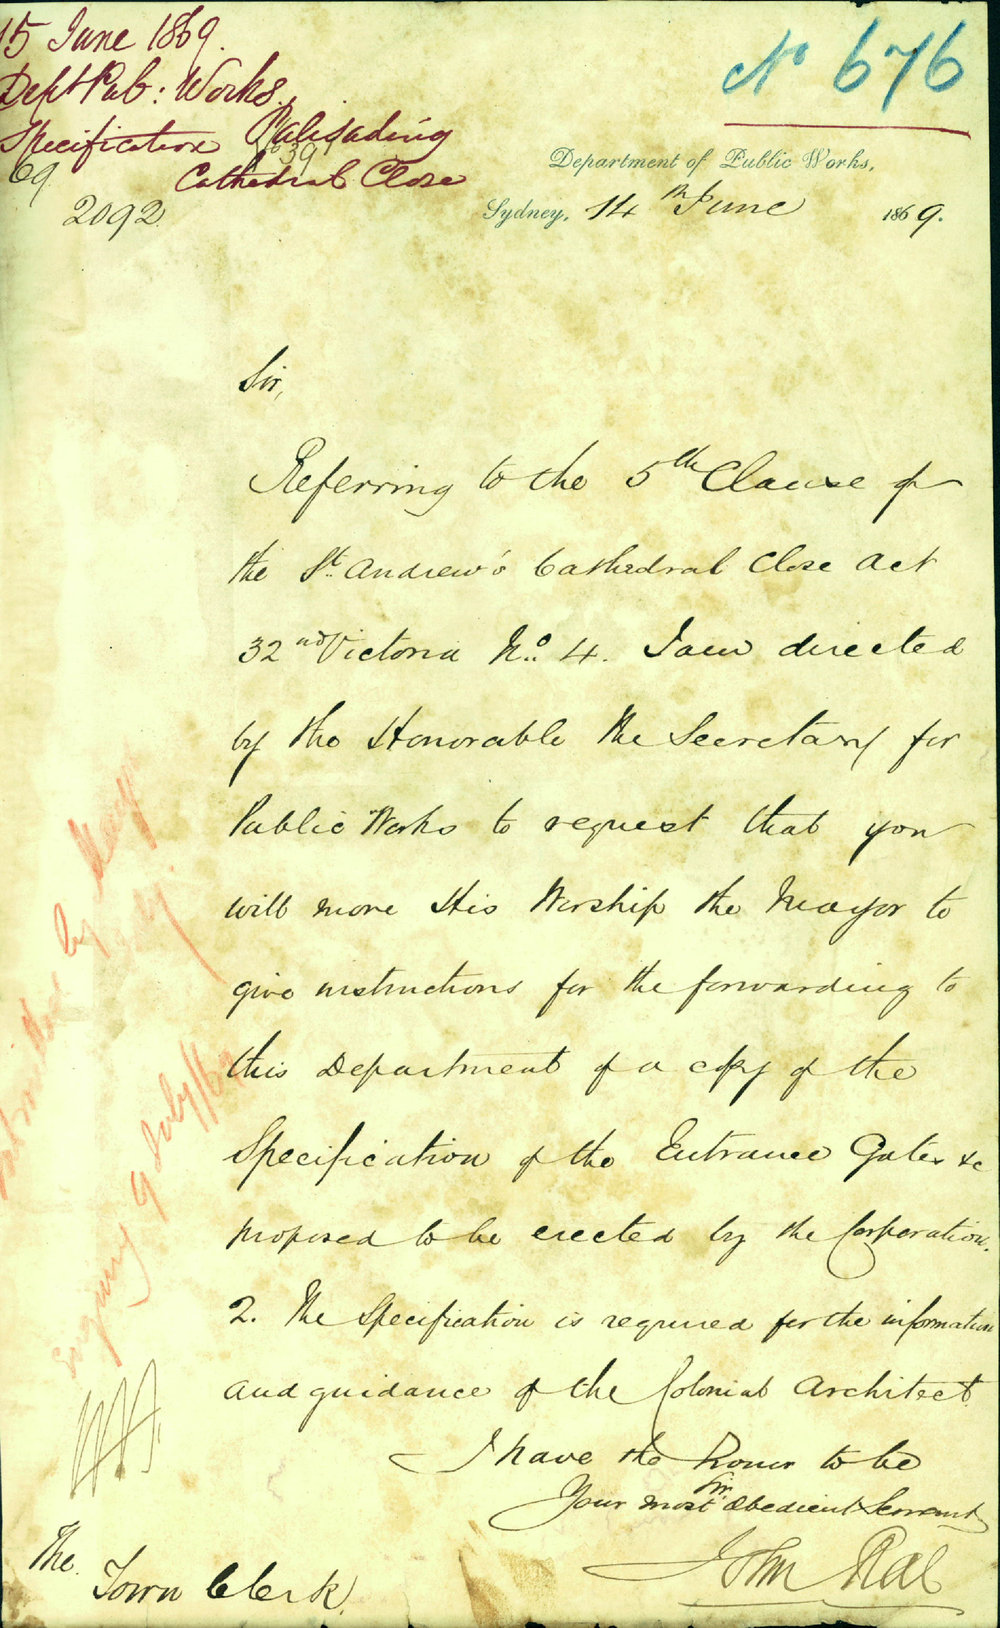 15 June 1869.
Dept Pub: Works.
Specification Palisading
Cathedral Close
69
2092
No 676
Department of Public Works,
Sydney, 14th June 1869.
Sir,
Referring to the 5th Clause of
the St. Andrew's Cathedral Close Act
32nd Victoria No. 4. I am directed
by the Honorable the Secretary for
Public Works to request that you
will move His Worship the Mayor to
give instructions for the forwarding to
this Department of a copy of the
Specification of the Entrance Gates &c
proposed to be erected by the Corporation.
2. The Specification is required for the information
and guidance of the Colonial Architect.
I have the honor to be
Sir,
Your most Obedient Servant
John Rae
The
Town Clerk.
by
9 July/69